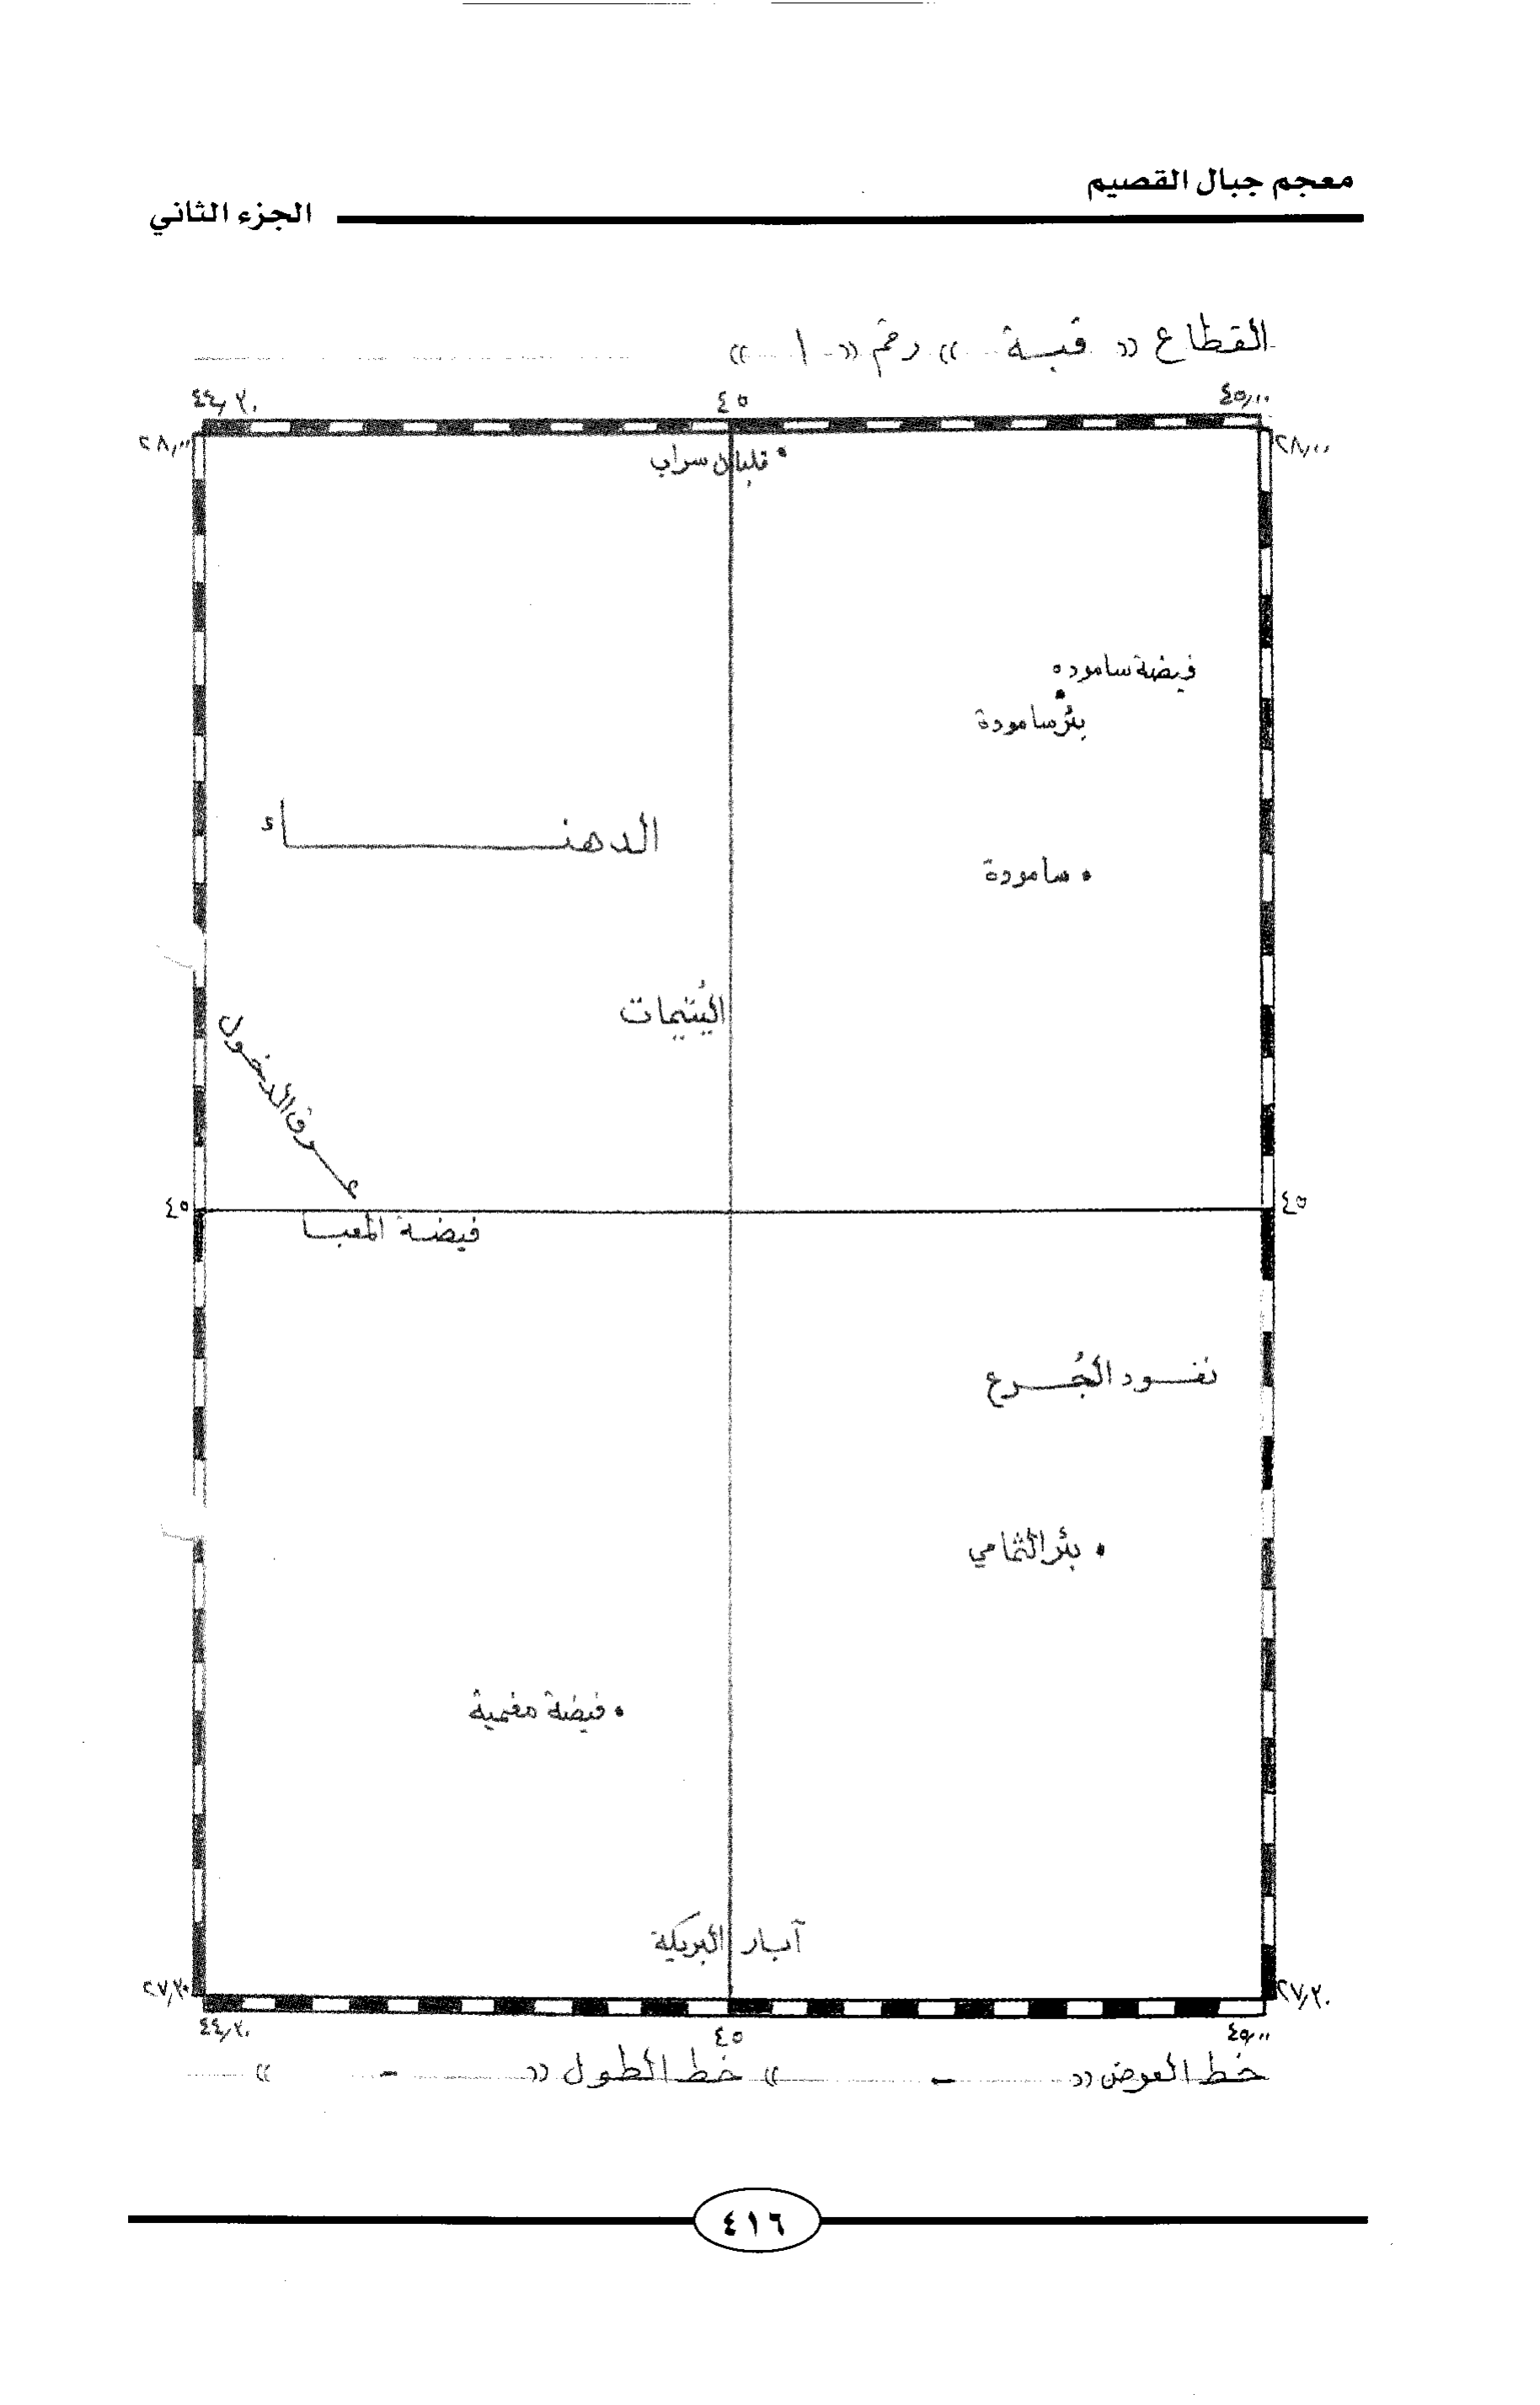 معجم جبال القصيم
الجزء الثاني
القطاع « قبة » رقم « ١ »
٤٤,٣٠ ٤٥ ٤٥,٠٠
٢٨,٠٠ ٢٨,٠٠
قلبان سراب
فيضة ساموده
بئر سامودة
الدهنــاء
سامودة
اليُتيمات
عـرق الدخول
٤٥ ٤٥
فيضة المعبـا
نفـود الجُـرع
بئر الثمامي
فيضة مغمية
آبار البريكة
٢٧,٣٠ ٢٧,٣٠
٤٤,٣٠ ٤٥ ٤٥,٠٠
خط العرض « - » خط الطول « - »
٤١٦